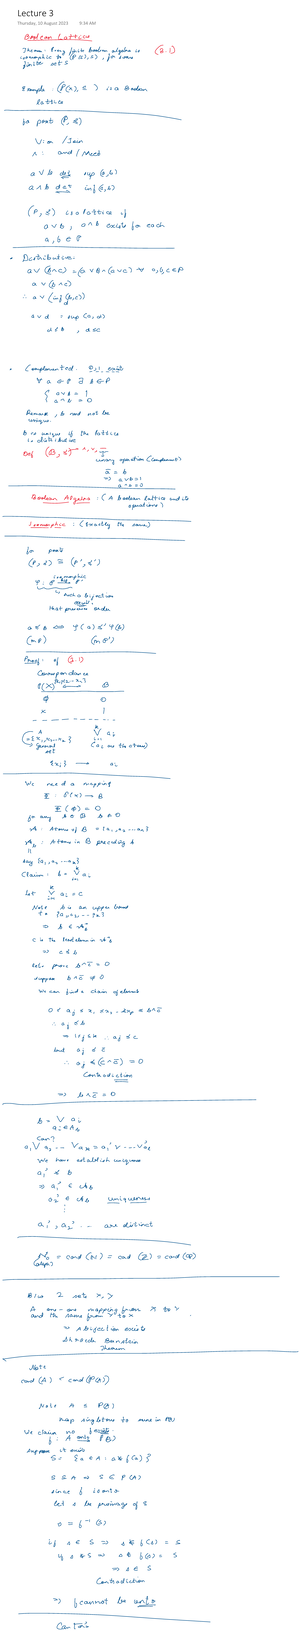 Lecture 3
Thursday, 10 August 2023 9:34 AM
Boolean Lattices
Theorem: Every finite boolean algebra is (2.1)
isomorphic to (P(S), ⊆), for some
finite set S
Example: (P(X), ⊆) is a Boolean
lattice
for poset (P, ≤)
V: or / Join
∧: and / Meet
a ∨ b def sup (a,b)
a ∧ b def inf (a,b)
(P, ≤) is a lattice if
a ∨ b, a ∧ b exists for each
a, b ∈ P
Distributive:
a ∨ (b ∧ c)
∴ a ∨ (inf (b,c))
a ∨ d = sup (a, d)
d ≤ b, d ≤ c
Complemented: 0,1 exists
∀ a ∈ P ∃ b ∈ P
{ a ∨ b = 1
a ∧ b = 0
Remark, b need not be
unique.
b is unique if the lattice
is distributive
unary operation (complement)
ā = b
⇒ a ∨ b = 1
a ∧ b = 0
Boolean Algebra: (A boolean lattice and its
operations)
Isomorphic: (Exactly the same)
for posets
(P, ≤) ≅ (P', ≤')
isomorphic
such a bijection
that preserves order
a ≤ b ⟺ φ(a) ≤' φ(b)
(in P) (in P')
Proof: of (2.1)
Correspondence
P(X) B
φ 0
X 1
general
set
(ai are the atoms)
{xi} ⟶ ai
We need a mapping
Φ: P(X) → B
Φ(φ) = 0
for any b ∈ B b ≠ 0
A: Atoms of B = {a1, a2 ... an}
Ab: Atoms in B preceding b
say {a1, a2 ... ak}
Let
Note b is an upper bound
⇒ c ≤ b
Let's prove b ∧ c̄ = 0
suppose b ∧ c̄ ≠ 0
We can find a chain of elements
∴ aj ≤ b
but aj ≤ c̄
∴ aj ≤ (c ∧ c̄) = 0
Contradiction
⇒ b ∧ c̄ = 0
Can?
We have establish uniqueness
a1' ≤ b
⇒ a1' ∈ Ab
a2' ∈ Ab uniqueness
a1', a2' ... are distinct
ℵ0 = card (N) = card (Z) = card (Q)
(aleph)
B/w 2 sets X, Y
A one-one mapping from X to Y
and the same from Y to X
⇒ A bijection exists
Shroder Bernstein
Theorem
Note
card (A) < card (P(A))
Note A ≤ P(A)
map singletons to same in P(A)
We claim no f exists
f: A onto P(A)
suppose it exists
S = {a ∈ A : a ∉ f(a)}
S ⊆ A ⇒ S ∈ P(A)
since f is onto
let s be preimage of S
s = f⁻¹(S)
if s ∈ S ⇒ s ∉ f(s) = S
if s ∉ S ⇒ s ∉ f(s) = S
⇒ s ∈ S
Contradiction
⇒ f cannot be onto
Cantor's